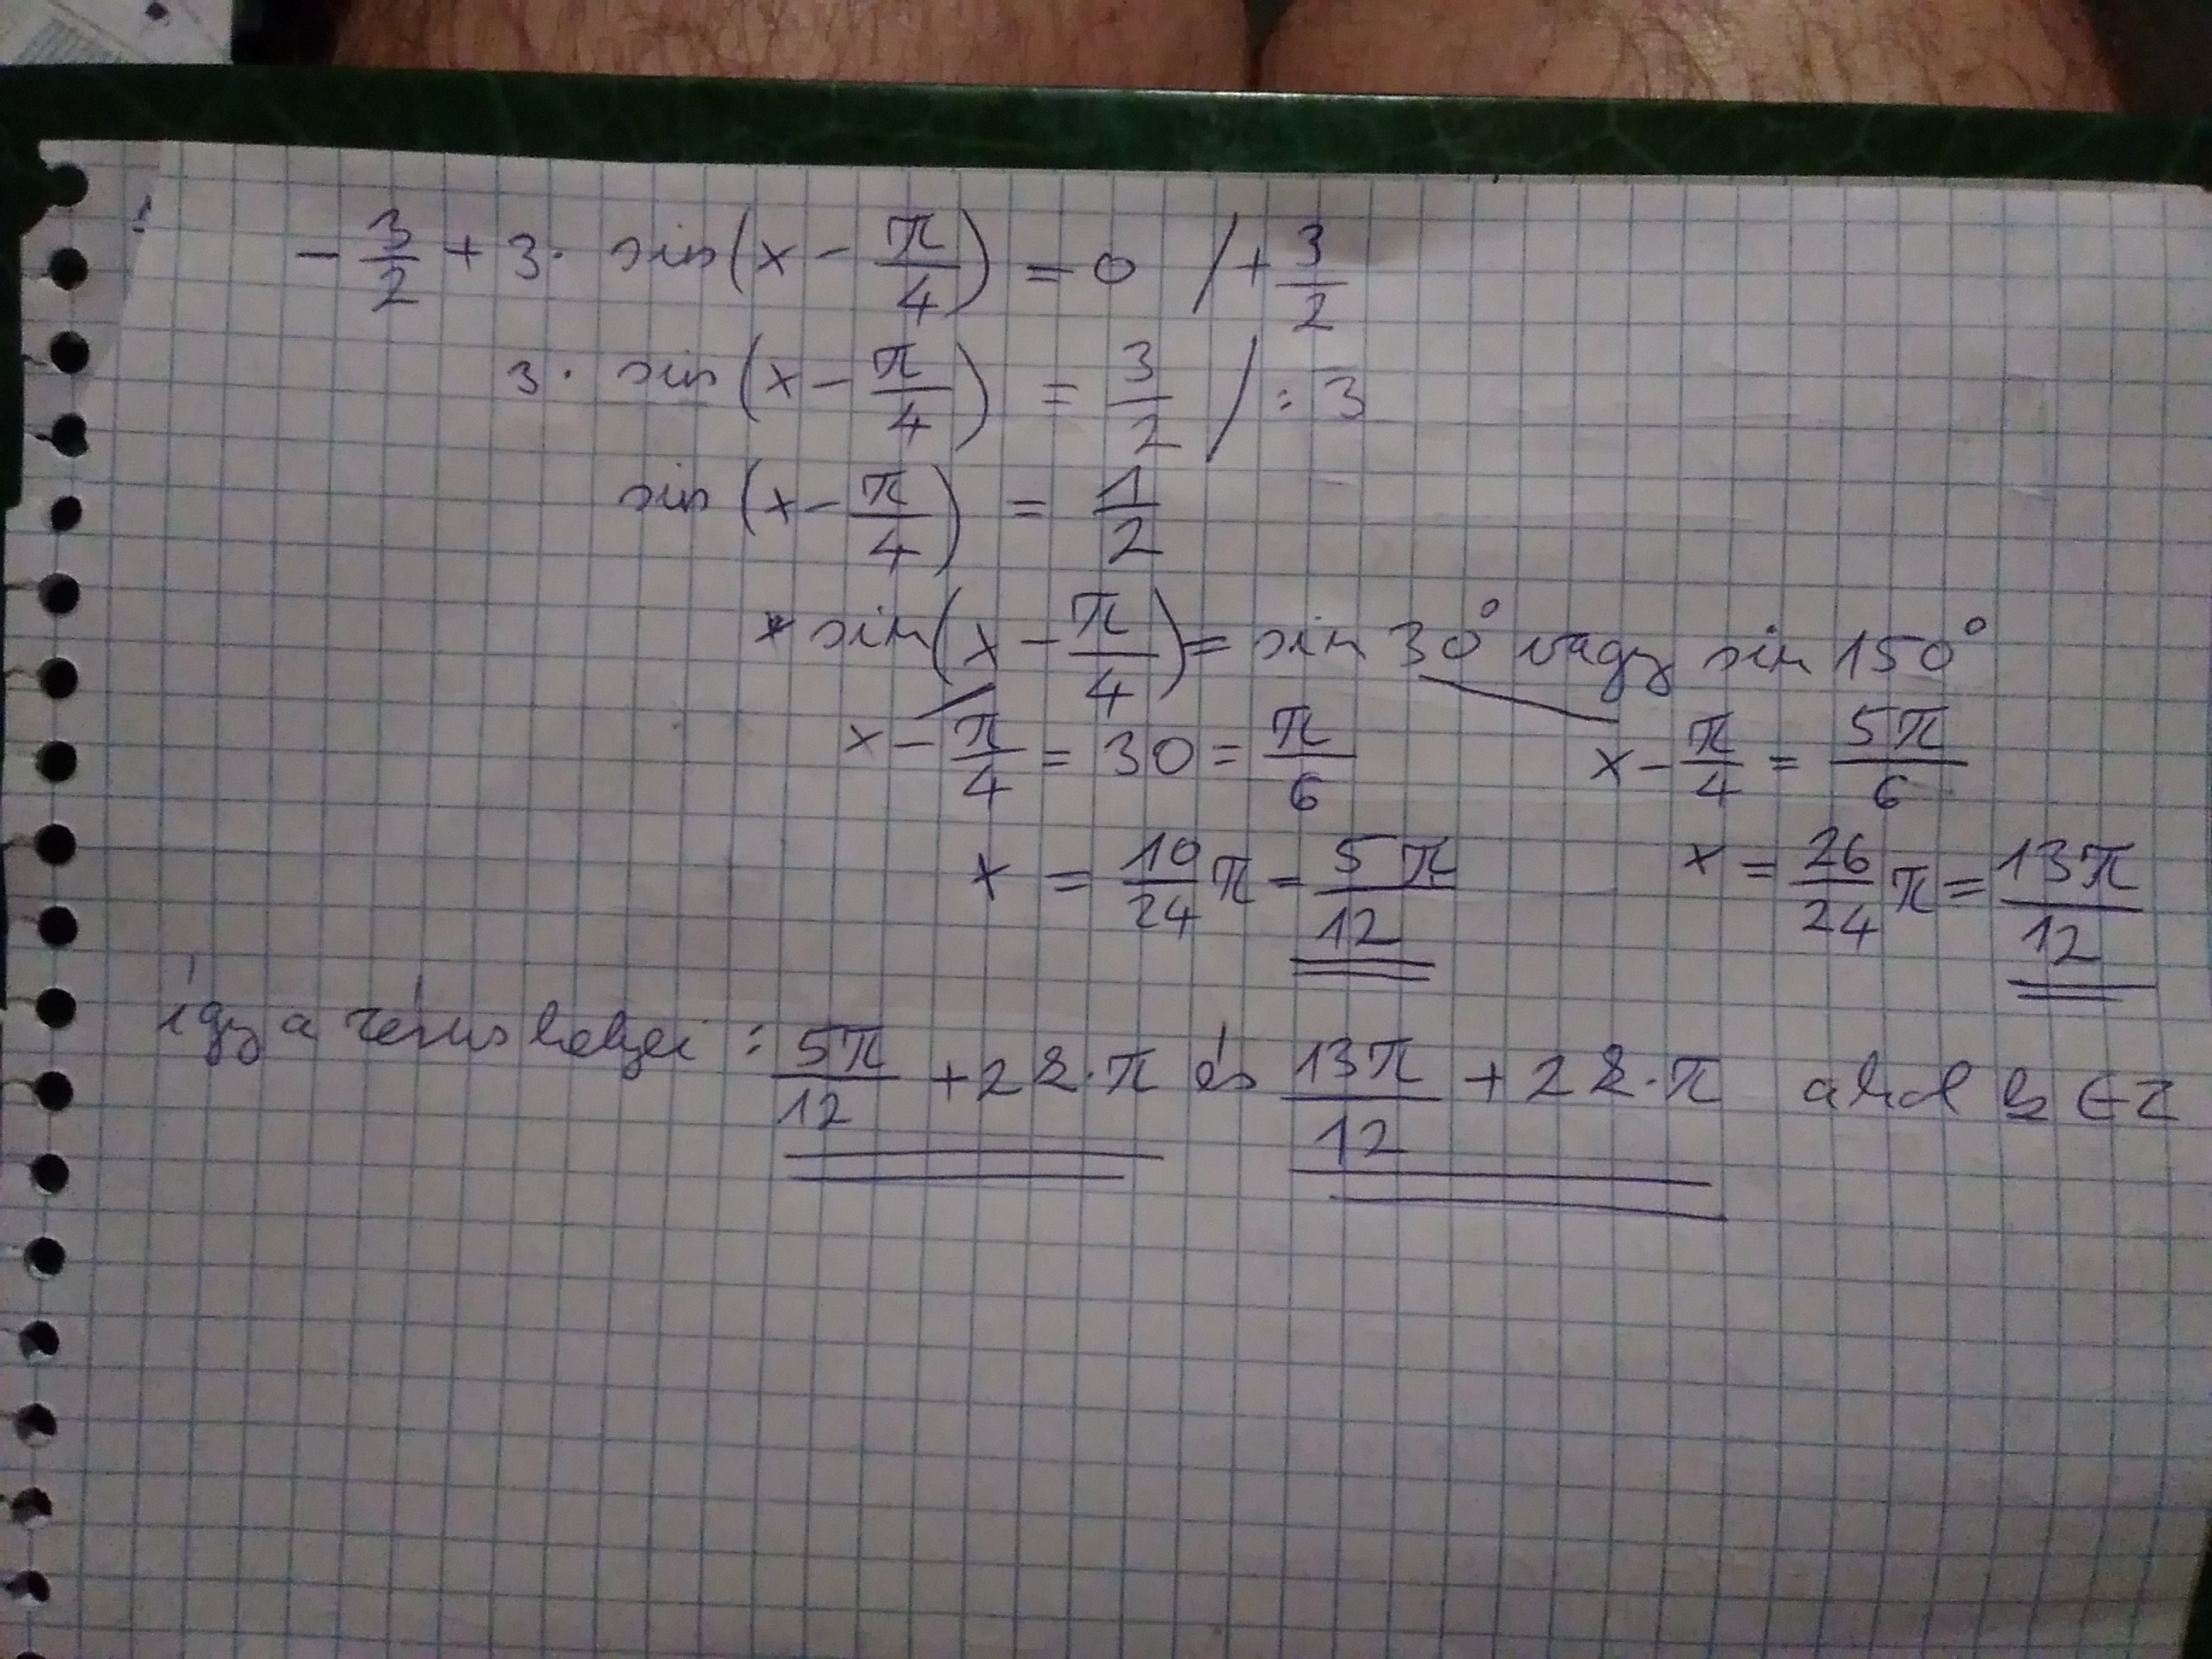 - 3/2 + 3 · sin(x - π/4) = 0 / + 3/2
3 · sin(x - π/4) = 3/2 / : 3
sin(x - π/4) = 1/2
sin(x - π/4) = sin 30° vagy sin 150°
x - π/4 = 30 = π/6 x - π/4 = 5π/6
x = 10/24 π = 5π/12 x = 26/24 π = 13π/12
így a zérushelyei : 5π/12 + 2k·π és 13π/12 + 2k·π ahol k ∈ Z